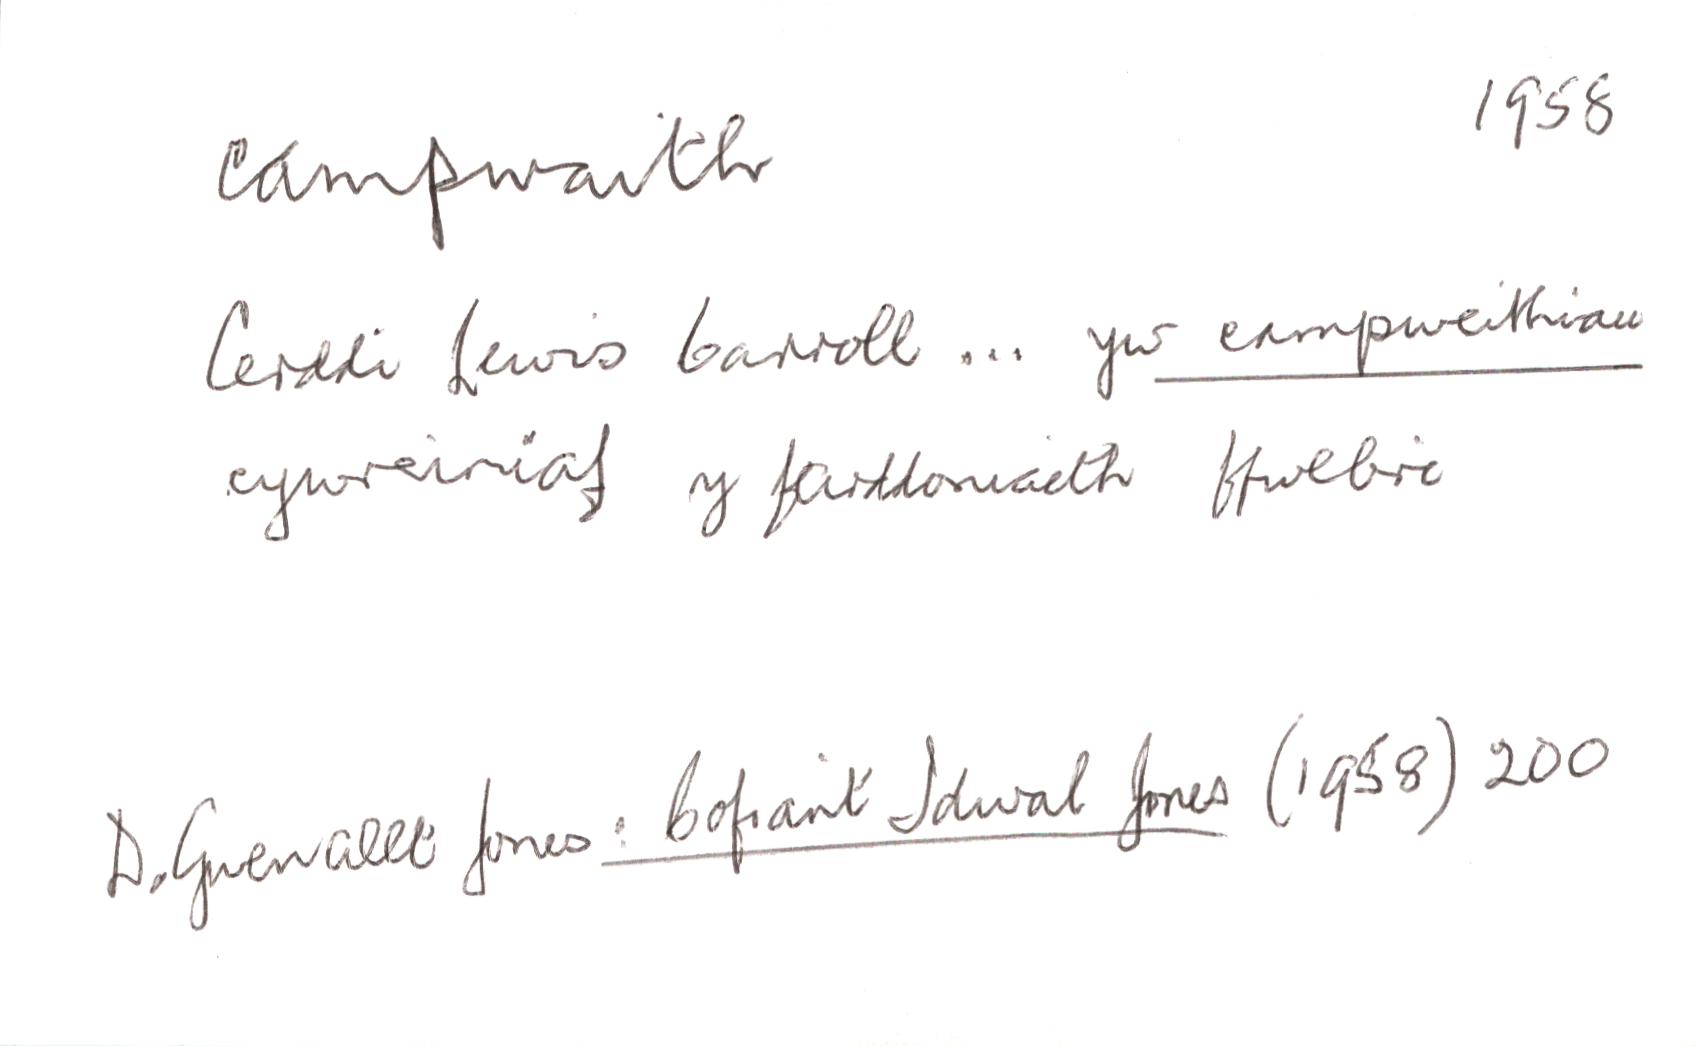 1958
campwaith
Cerddi Lewis Carroll ... yw campweithiau
cywreiniaf y farddoniaeth ffwlbri
D. Gwenallt Jones: Cofiant Idwal Jones (1958) 200